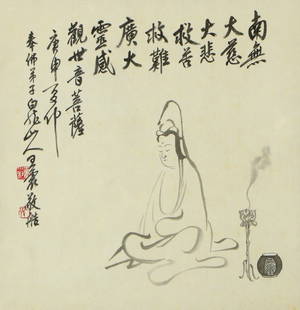 南無
大慈
大悲
救苦
救難
廣大
靈感
觀世音菩薩
庚申夏仲
奉佛弟子白龍山人王震敬繪